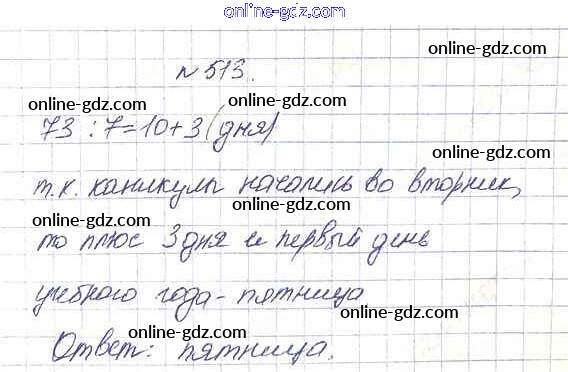 online-gdz.com
online-gdz.com
№ 513.
online-gdz.com online-gdz.com
73 : 7 = 10 + 3 (дня)
online-gdz.com
т.к. каникулы начались во вторник,
online-gdz.com online-gdz.com
то плюс 3 дня и первый день
online-gdz.com
учебного года - пятница
online-gdz.com online-gdz.com
Ответ: пятница.
online-gdz.com